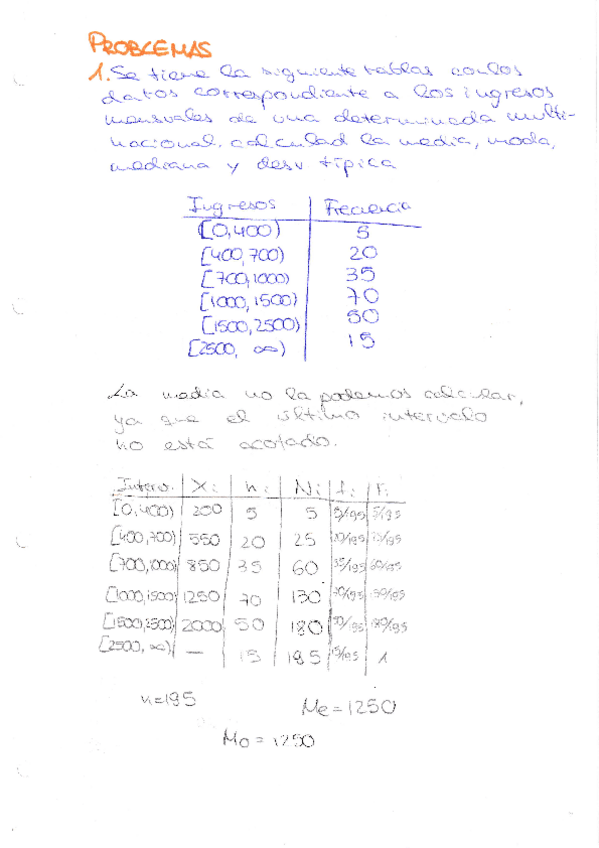 PROBLEMAS
1. Se tiene la siguiente tablas con los
datos correspondiente a los ingresos
mensuales de una determinada multi-
nacional. calculad la media, moda,
mediana y desv típica
Ingresos Frecuencia
[0,400) 5
[400,700) 20
[700,1000) 35
[1000,1500) 70
[1500,2500) 50
[2500, ∞) 15
La media no la podemos calcular,
ya que el último intervalo
no está acotado.
Interv. Xi ni Ni fi Fi
[0,400) 200 5 5 5/195 5/195
[400,700) 550 20 25 20/195 25/195
[700,1000) 850 35 60 35/195 60/195
[1000,1500) 1250 70 130 70/195 130/195
[1500,2500) 2000 50 180 50/195 180/195
[2500, ∞) — 15 195 15/195 1
n=195 Me=1250
Mo=1250